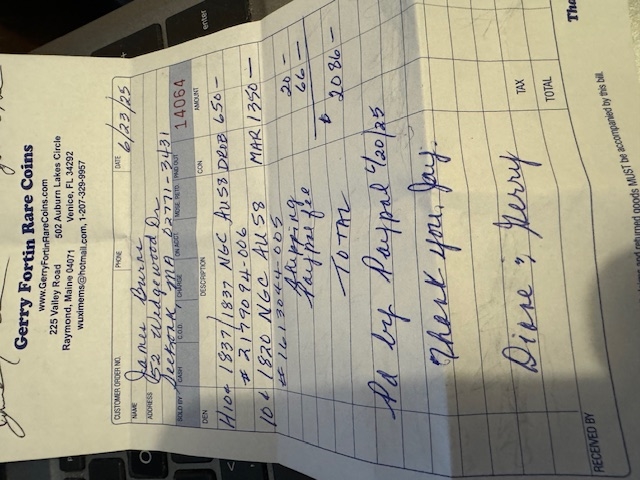 Gerry Fortin Rare Coins
www.GerryFortinRareCoins.com
225 Valley Road 502 Auburn Lakes Circle
Raymond, Maine 04071 Venice, FL 34292
wuximems@hotmail.com, 1-207-329-9957
CUSTOMER ORDER NO. PHONE DATE 6/23/25
NAME James Burns
ADDRESS 52 Wedgewood Dr
Seekonk MA 02771-3431
SOLD BY CASH C.O.D. CHARGE ON ACCT. MDSE. RETD. PAID OUT 14064
DEN DESCRIPTION CON AMOUNT
H10¢ 1837/1837 NGC AU58 DROB 650 —
# 2179094-006
10¢ 1820 NGC AU 58 MAR 1350 —
# 1613044-005
Shipping 20 —
Paypal fee 66 —
TOTAL $ 2086 —
Pd by Paypal 6/20/25
Thank you, Jay.
Diane & Gerry
TAX
TOTAL
RECEIVED BY
returned goods MUST be accompanied by this bill.
enter